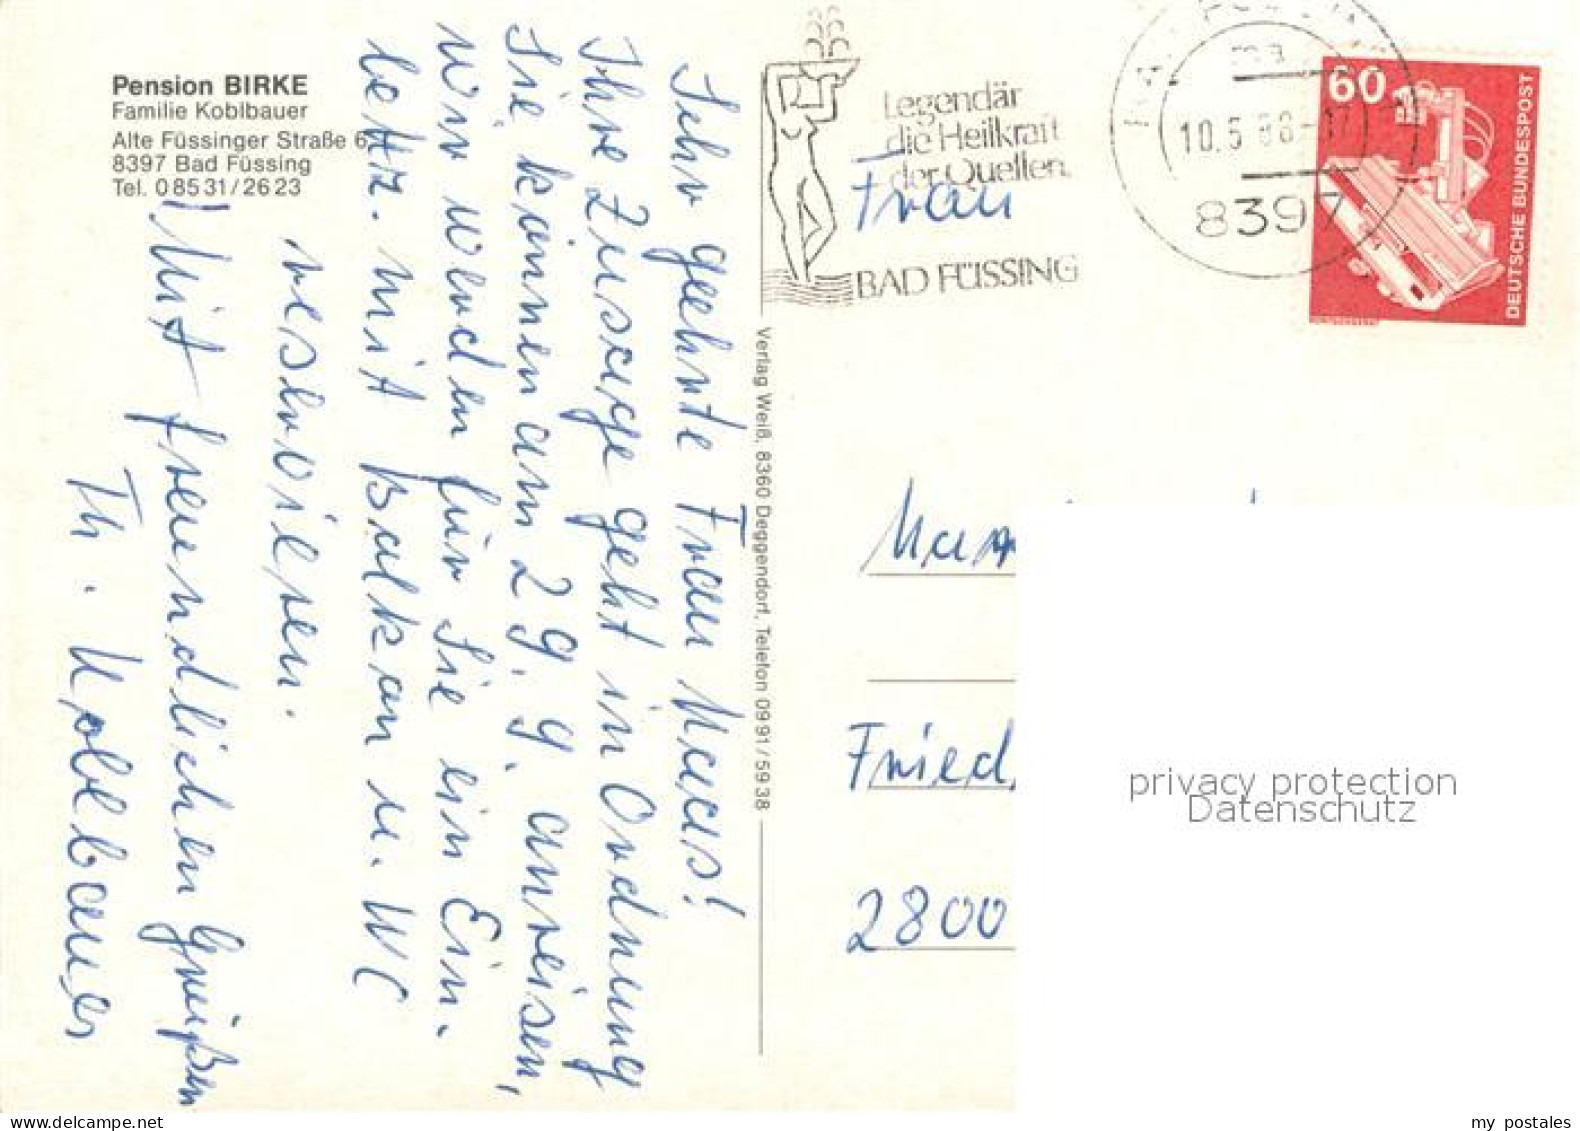 Pension BIRKE
Familie Koblbauer
Alte Füssinger Straße 6
8397 Bad Füssing
Tel. 0 85 31 / 26 23
Sehr geehrte Frau Maas!
Ihre Zusage geht in Ordnung
Sie können am 29. 9. anreisen,
wir werden für Sie ein Ein.
bettz. mit Balkon u. WC
reservieren.
Mit freundlichen Grüßen
Th. Koblbauer
Verlag Weiß, 8360 Deggendorf, Telefon 09 91 / 59 38
Legendär
die Heilkraft
der Quellen.
BAD FÜSSING
10.5.88-17
8397
60
DEUTSCHE BUNDESPOST
Frau
Fried
2800
privacy protection
Datenschutz
my postales